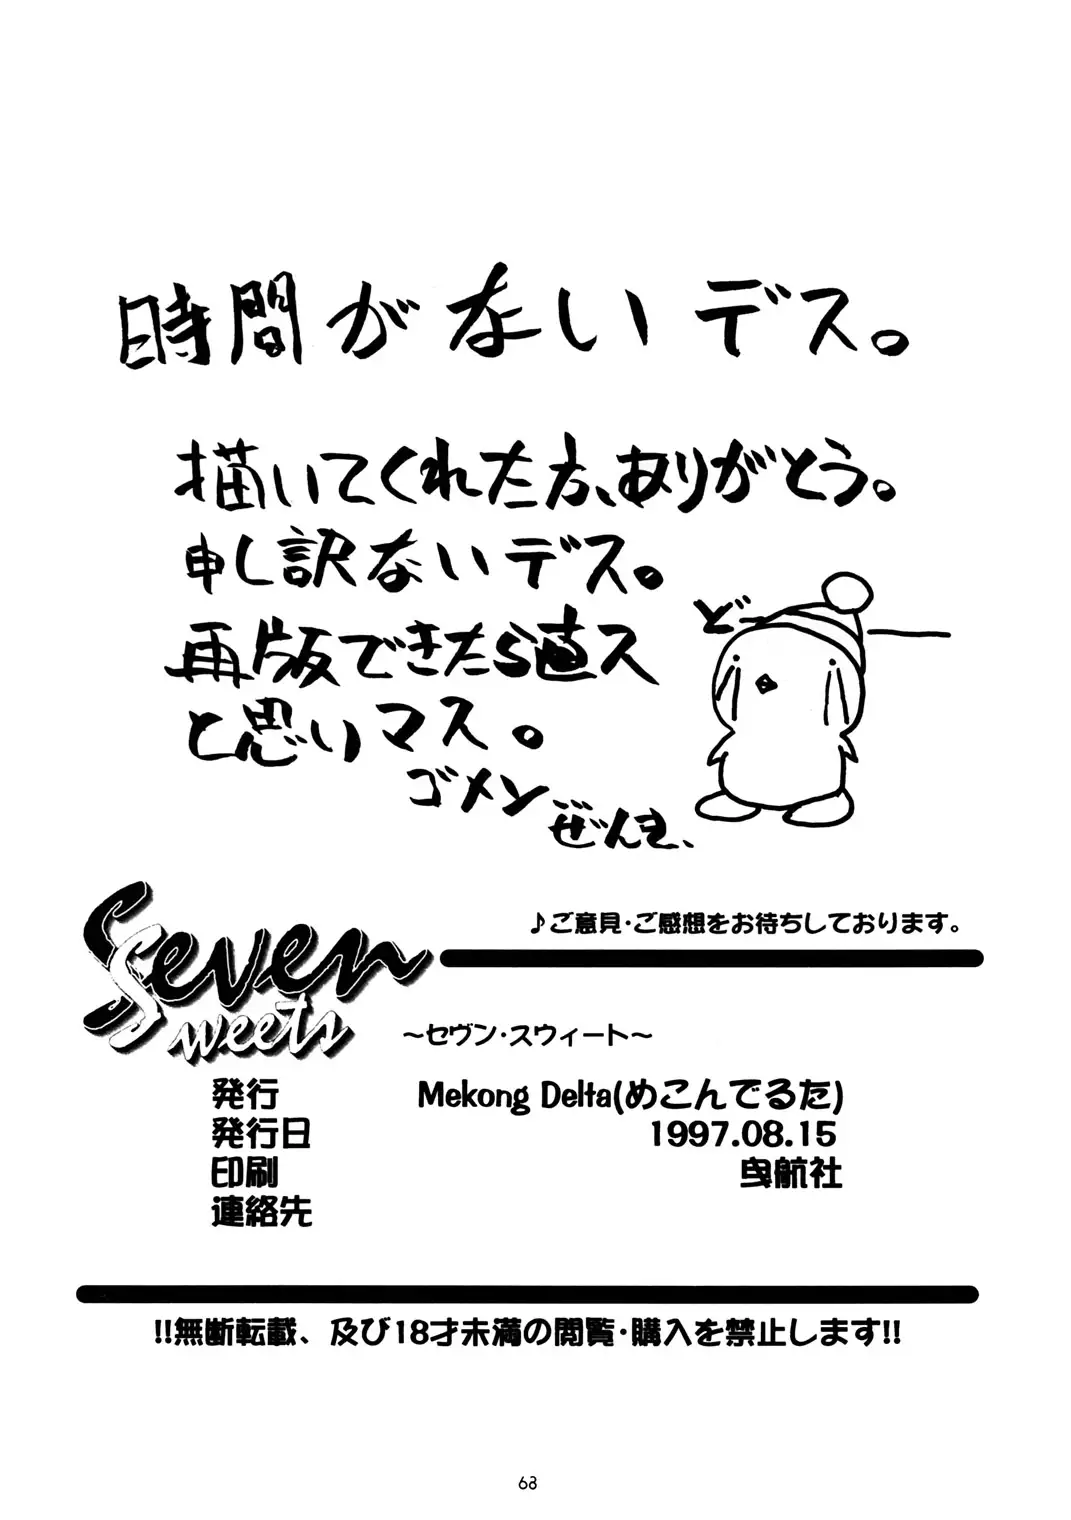 時間がないデス。
描いてくれた方、ありがとう。
申し訳ないデス。
再版できたら直ス
と思いマス。
ゴメン
ぜんき、
どー
Seven
Sweets
♪ご意見・ご感想をお待ちしております。
～セヴン・スウィート～
発行 Mekong Delta(めこんでるた)
発行日 1997.08.15
印刷 曳航社
連絡先
!!無断転載、及び18才未満の閲覧・購入を禁止します!!
68